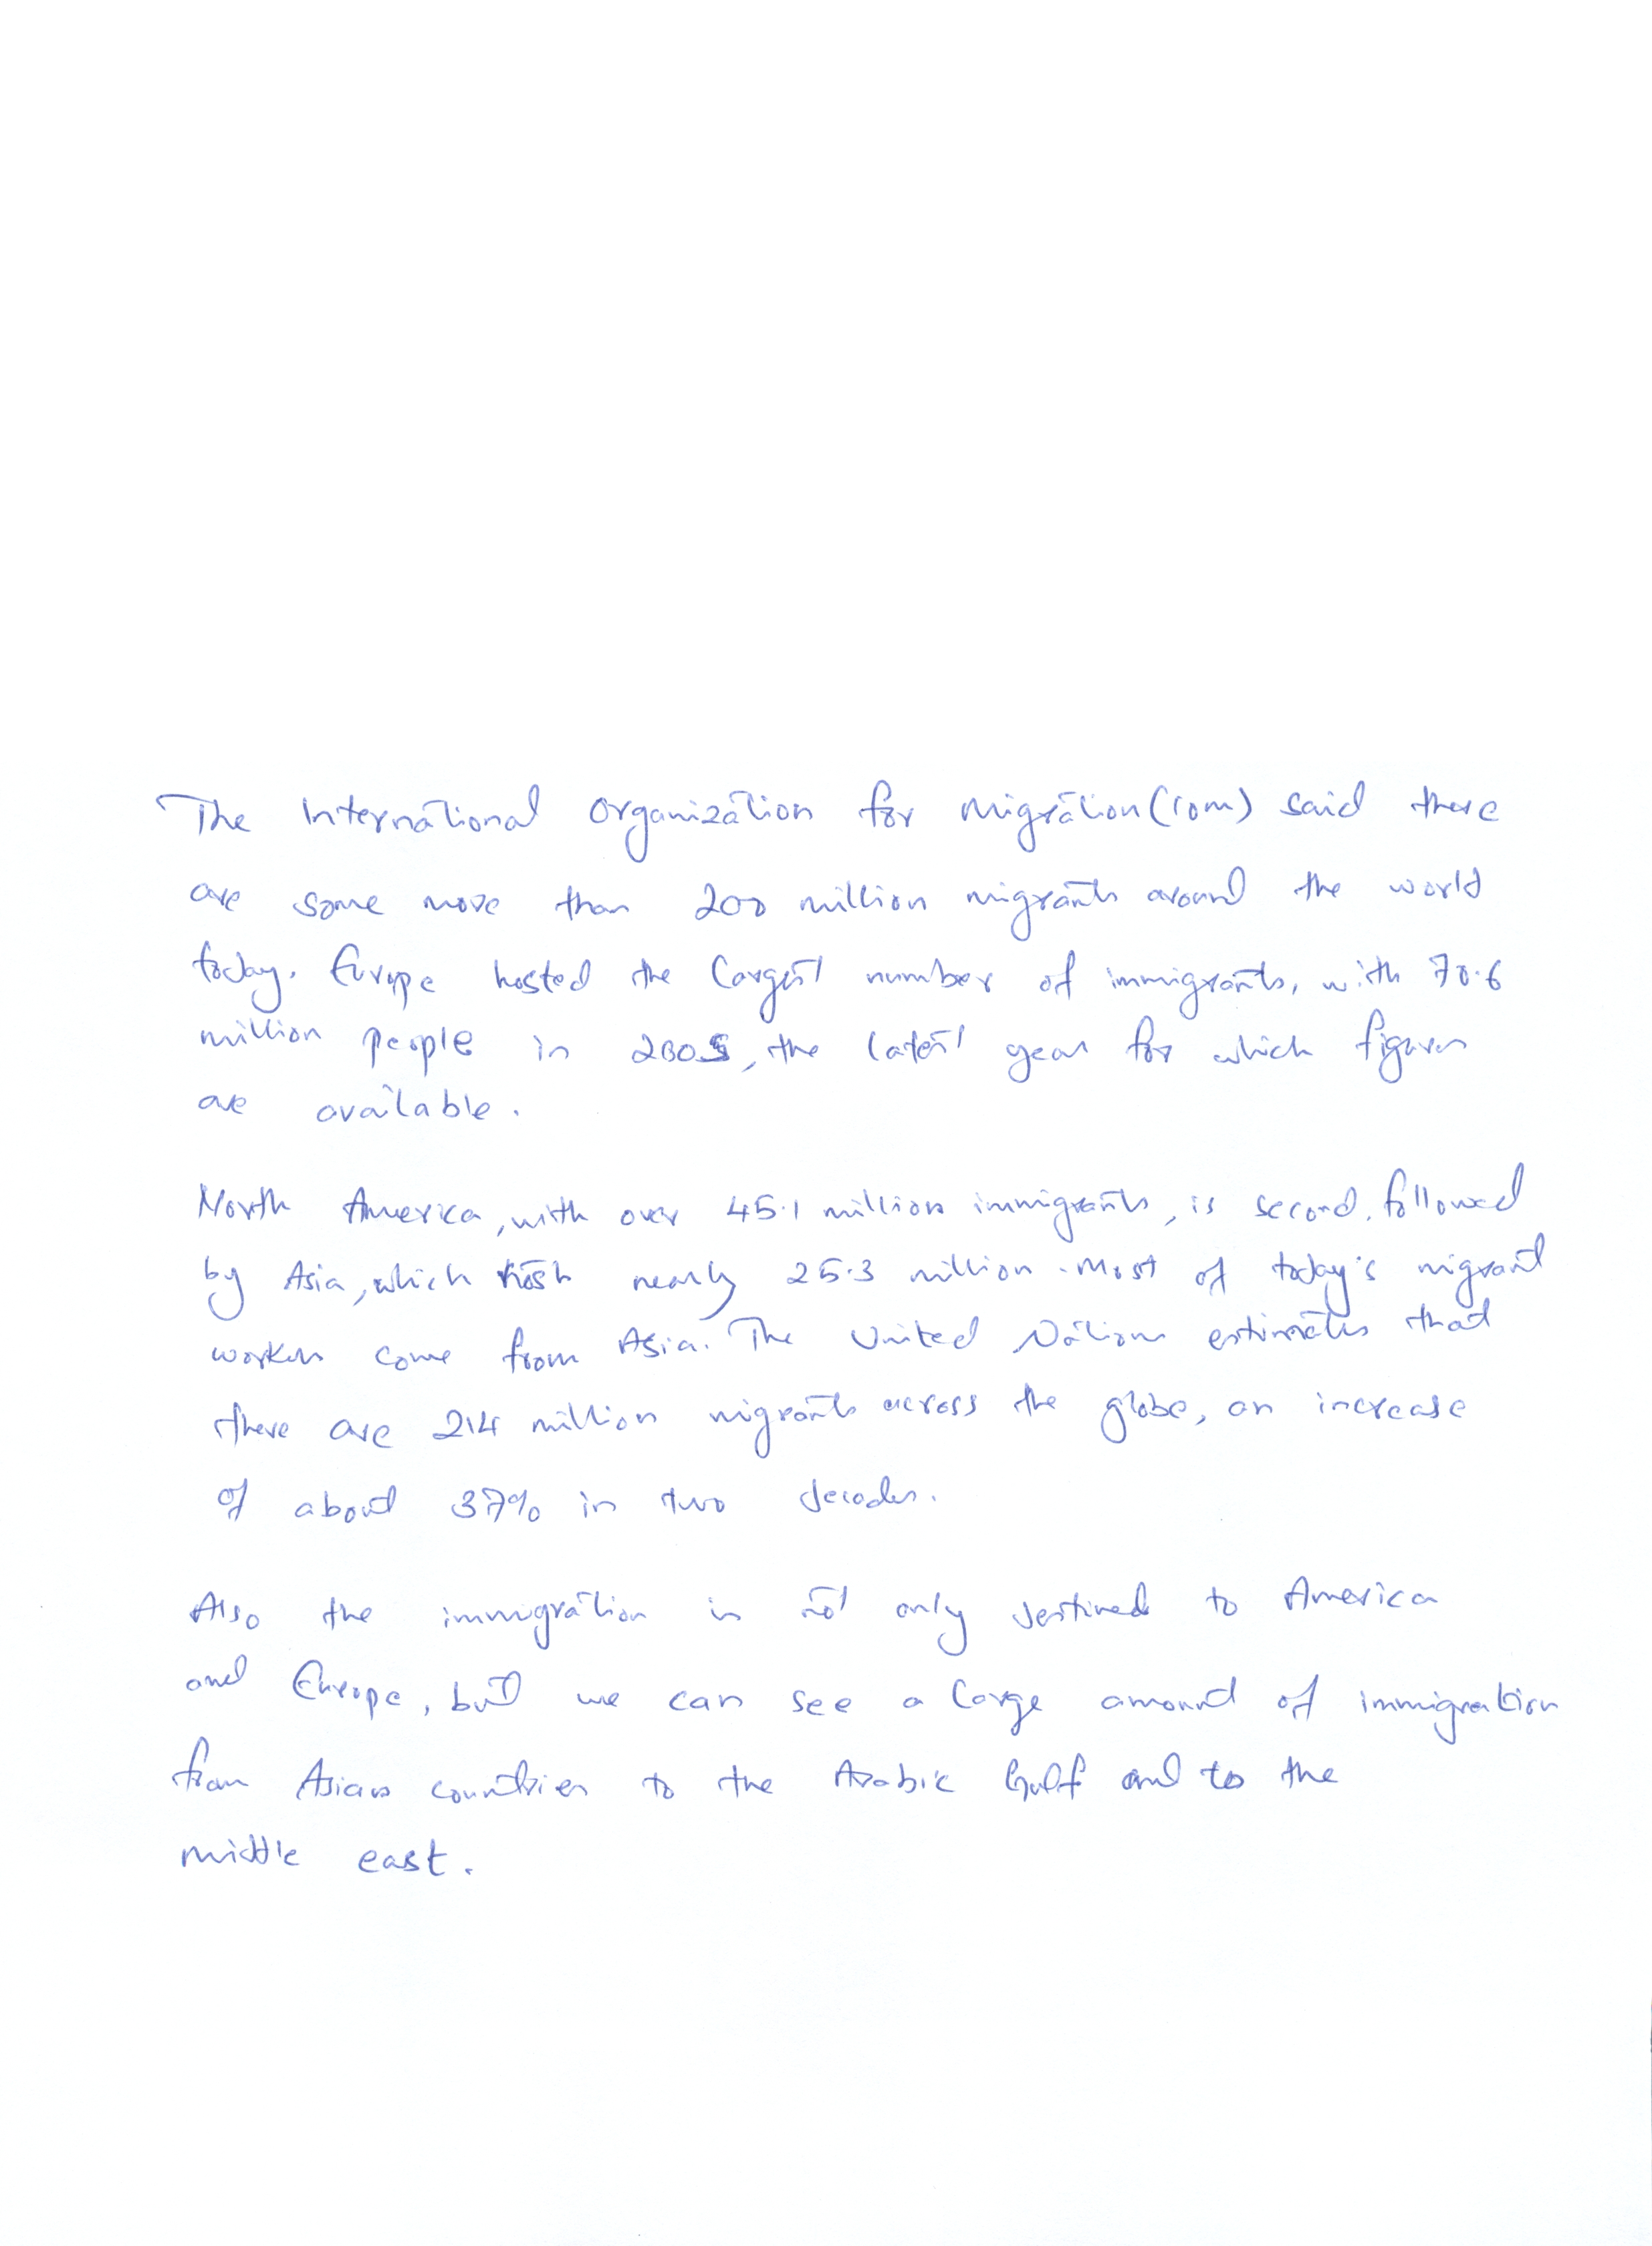 The International Organization for Migration (IOM) said there
are some more than 200 million migrants around the world
today. Europe hosted the largest number of immigrants, with 70.6
million people in 2005, the latest year for which figures
are available.
North America, with over 45.1 million immigrants, is second, followed
by Asia, which hosts nearly 25.3 million. Most of today's migrant
workers come from Asia. The United Nations estimates that
there are 214 million migrants across the globe, an increase
of about 37% in two decades.
Also the immigration is not only destined to America
and Europe, but we can see a large amount of immigration
from Asians countries to the Arabic Gulf and to the
middle east.